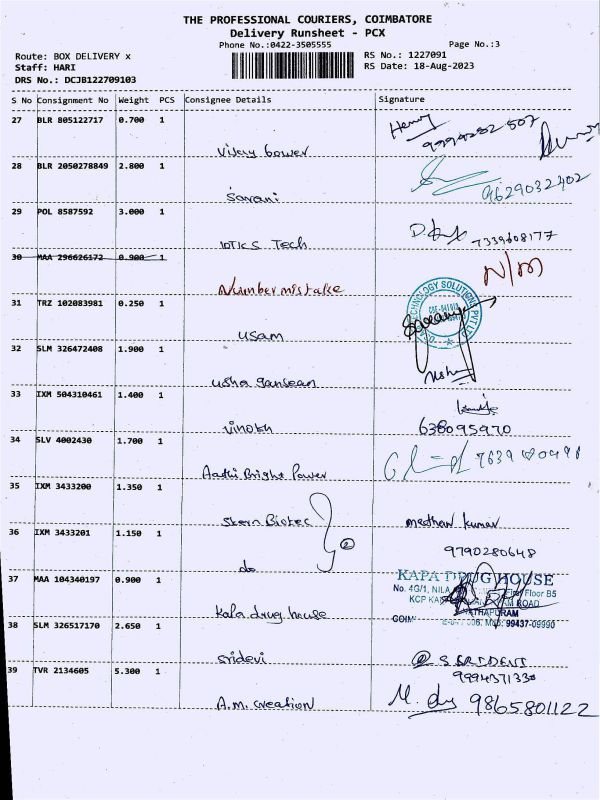 THE PROFESSIONAL COURIERS, COIMBATORE
Delivery Runsheet - PCX
Phone No.:0422-3505555
Page No.:3
Route: BOX DELIVERY x
RS No.: 1227091
Staff: HARI
RS Date: 18-Aug-2023
DRS No.: DCJB122709103
S No Consignment No Weight PCS Consignee Details Signature
27 BLR 805122717 0.700 1
Vijay Power
28 BLR 2050278849 2.800 1
9629032402
Sarani
29 POL 8587592 3.000 1
7339608177
IOTICS Tech
30 MAA 296626172 0.900 1 N/M
Number mistake
31 TRZ 102083981 0.250 1
TECHNOLOGY SOLUTIONS PVT LTD
usam
32 SLM 326472408 1.900 1
usha gansean Usha
33 IXM 504310461 1.400 1
vinoth 638095970
34 SLV 4002430 1.700 1
Aathi Bright Power
35 IXM 3433200 1.350 1
Skern Biotec medhan kumar
36 IXM 3433201 1.150 1
2
9790280648
do
37 MAA 104340197 0.900 1 KAPA DRUG HOUSE
No. 4G/1, NILA First Floor B5
ROAD
99437-09990
Kala drug house
38 SLM 326517170 2.650 1
sridevi
9994371330
39 TVR 2134605 5.300 1
A.M. creation 9865801122